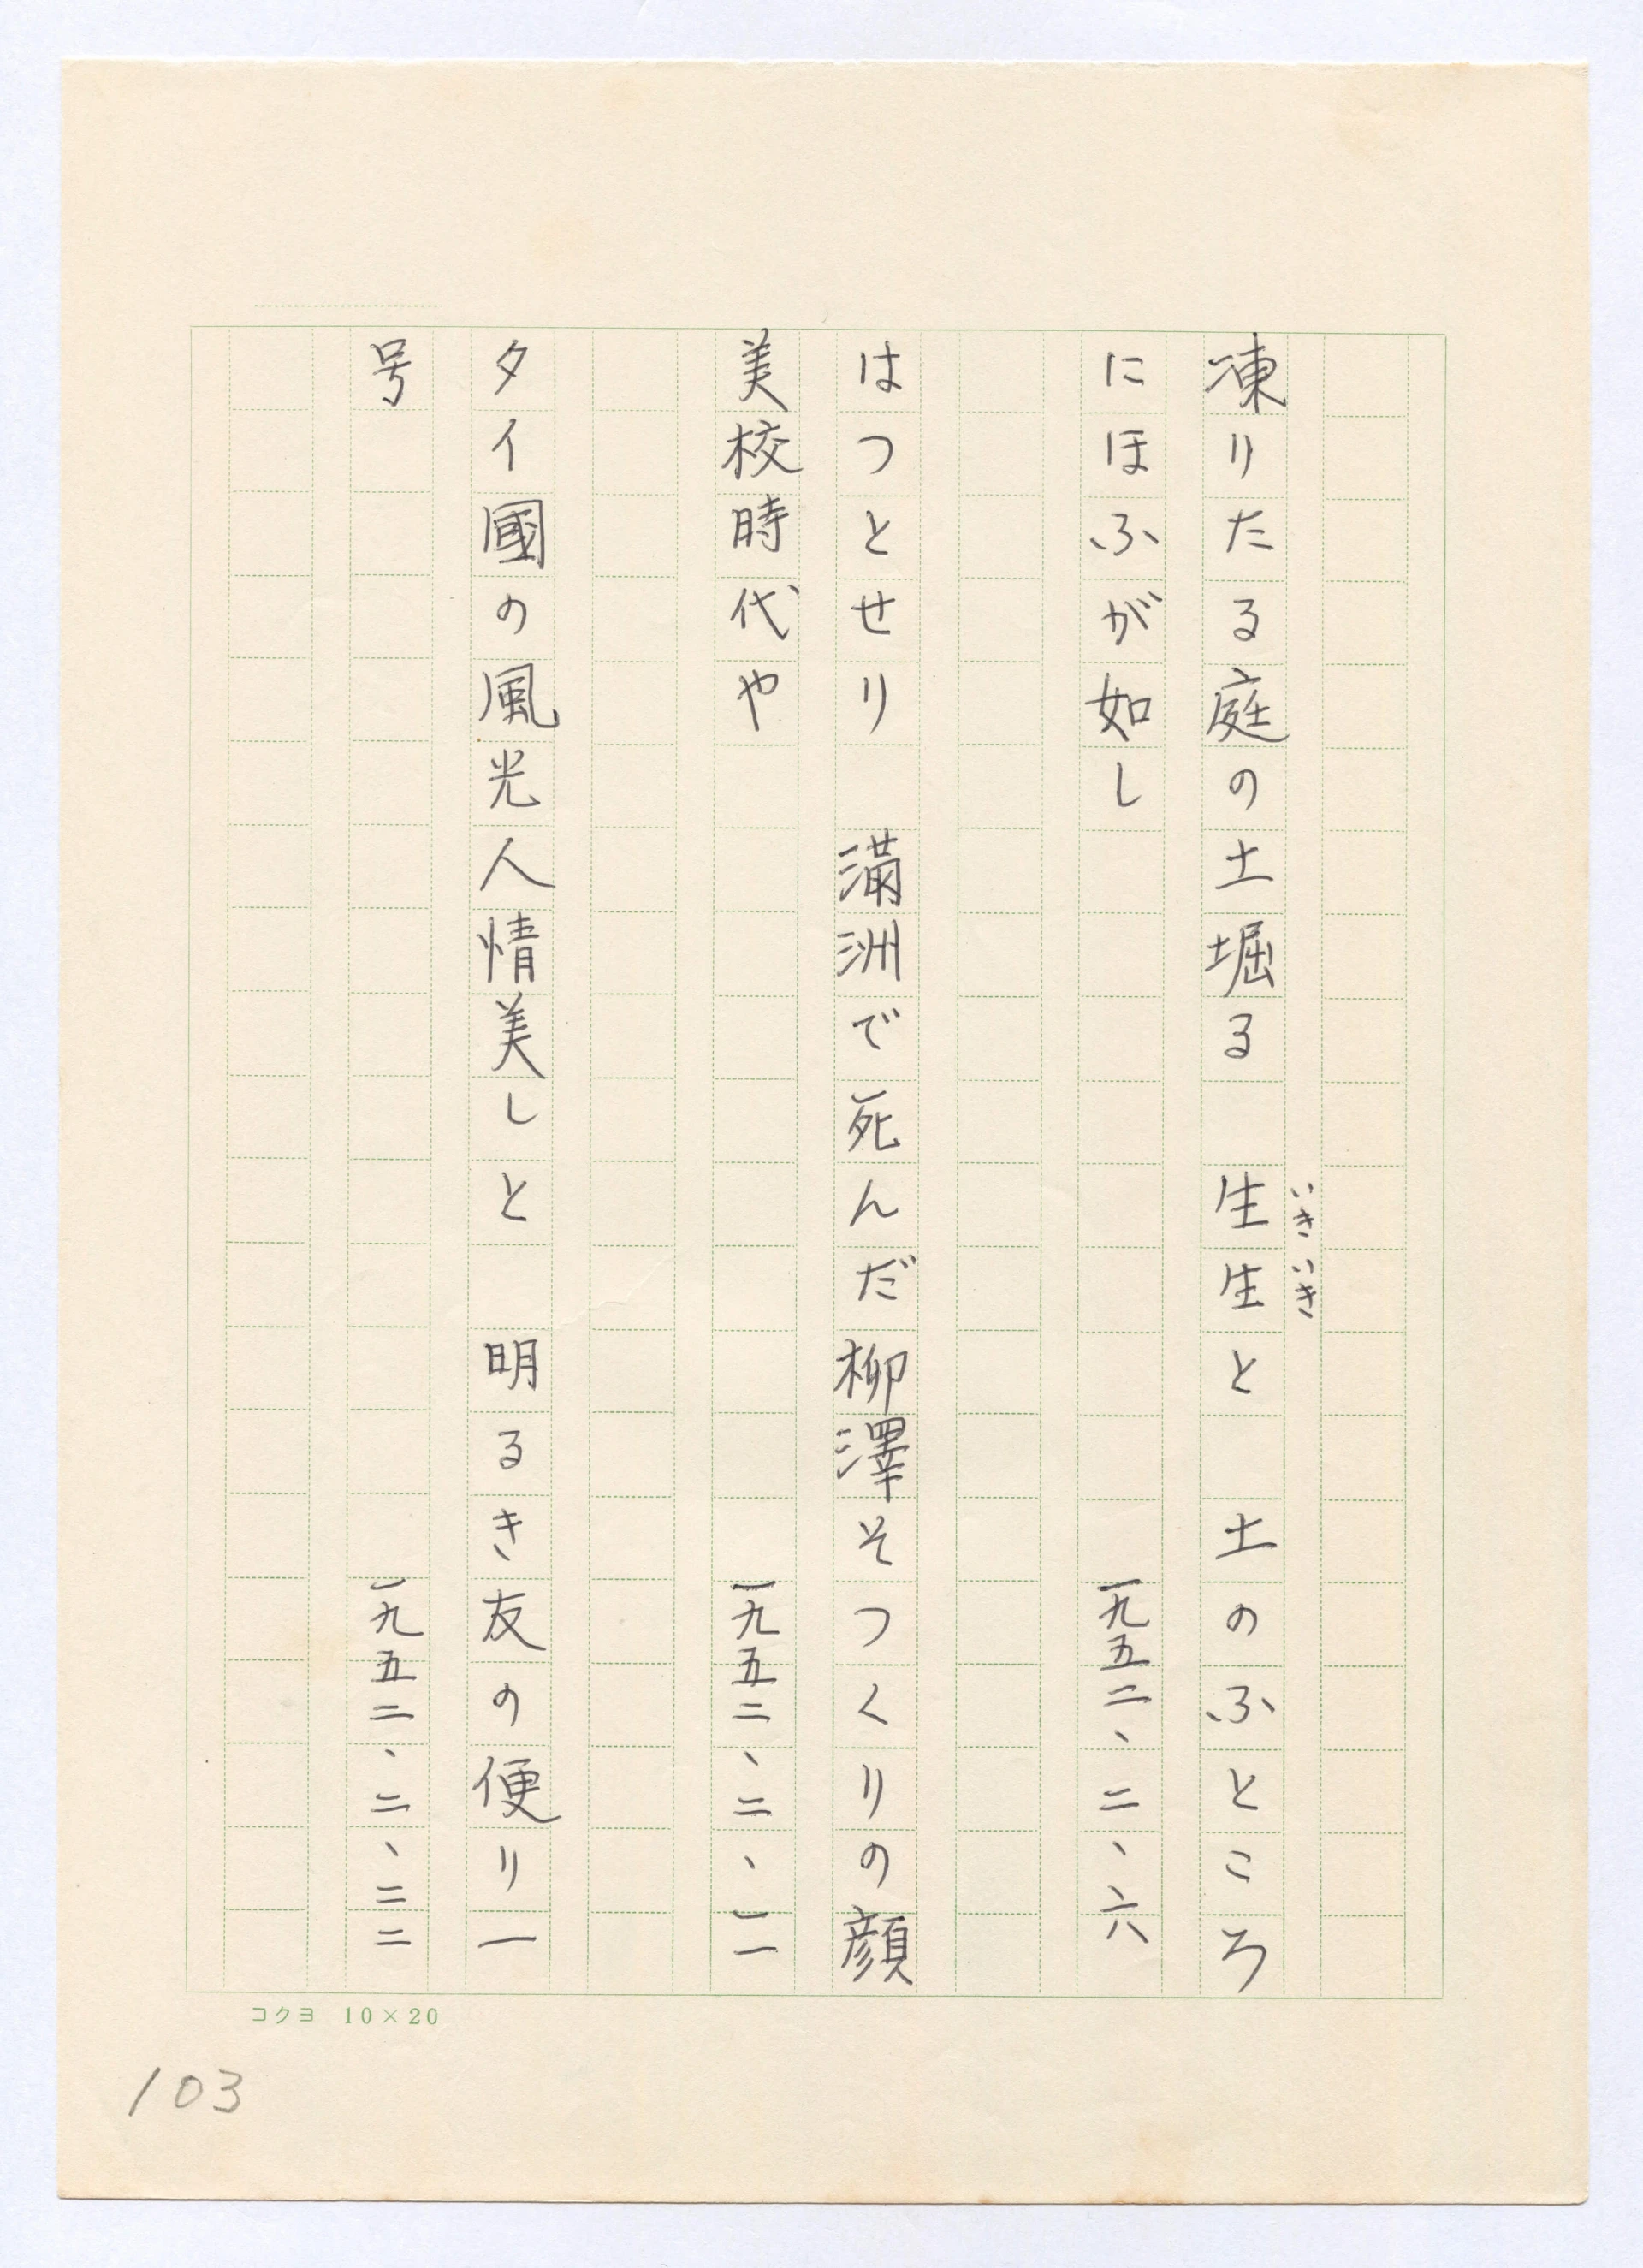 凍りたる庭の土堀る　生生と　土のふところ
いきいき
にほふが如し　一九五二、二、六
はつとせり　満洲で死んだ柳澤そつくりの顔
美校時代や　一九五二、二、一一
タイ國の風光人情美しと　明るき友の便り一
号　一九五二、二、二二
コクヨ 10×20
103